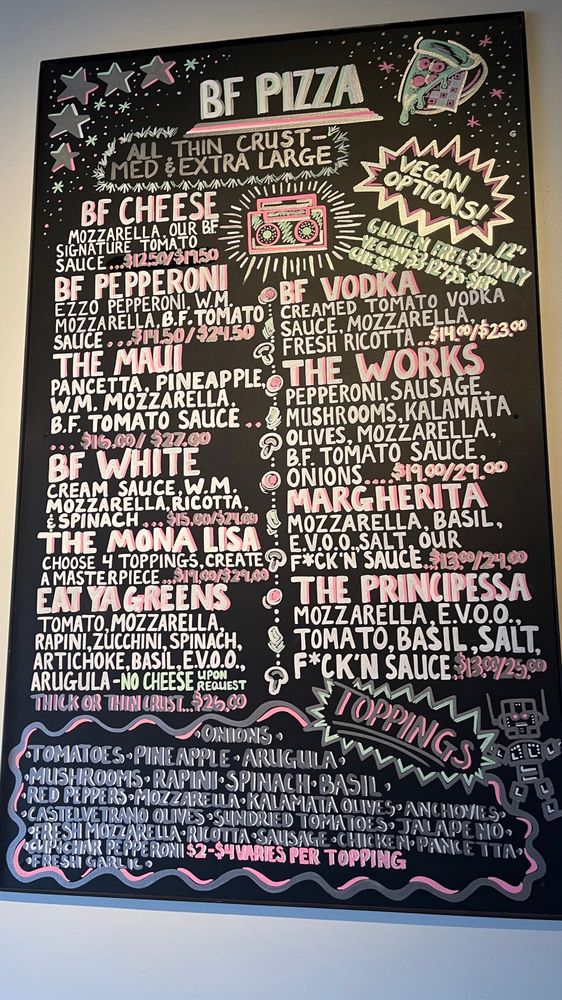 BF PIZZA
ALL THIN CRUST-
MED & EXTRA LARGE
VEGAN
OPTIONS!
BF CHEESE
MOZZARELLA, OUR BF
SIGNATURE TOMATO
SAUCE...$12.50/$19.50
12"
GLUTEN FREE ONLY
BF PEPPERONI
EZZO PEPPERONI, W.M.
MOZZARELLA, B.F. TOMATO
SAUCE...$14.50/$24.50
THE MAUI
PANCETTA, PINEAPPLE,
W.M. MOZZARELLA,
B.F. TOMATO SAUCE..
... $16.00/ $27.00
BF WHITE
CREAM SAUCE, W.M.
MOZZARELLA, RICOTTA,
& SPINACH...$15.00/$24.00
THE MONA LISA
CHOOSE 4 TOPPINGS, CREATE
A MASTERPIECE...$19.00/$29.00
EAT YA GREENS
TOMATO, MOZZARELLA,
RAPINI, ZUCCHINI, SPINACH,
ARTICHOKE, BASIL, E.V.O.O.,
ARUGULA-NO CHEESE UPON REQUEST
THICK OR THIN CRUST...$26.00
BF VODKA
CREAMED TOMATO VODKA
SAUCE, MOZZARELLA,
FRESH RICOTTA...$14.00/$23.00
THE WORKS
PEPPERONI, SAUSAGE,
MUSHROOMS, KALAMATA
OLIVES, MOZZARELLA,
B.F. TOMATO SAUCE,
ONIONS....$19.00/29.00
MARGHERITA
MOZZARELLA, BASIL,
E.V.O.O., SALT, OUR
F*CK'N SAUCE..$13.00/24.00
THE PRINCIPESSA
MOZZARELLA, E.V.O.O.,
TOMATO, BASIL, SALT,
F*CK'N SAUCE.$13.00/25.00
TOPPINGS
ONIONS•
TOMATOES•PINEAPPLE•ARUGULA•
MUSHROOMS•RAPINI•SPINACH•BASIL•
RED PEPPERS•MOZZARELLA•KALAMATA OLIVES•ANCHOVIES•
CASTELVETRANO OLIVES•SUNDRIED TOMATOES•JALAPENO•
FRESH MOZZARELLA•RICOTTA•SAUSAGE•CHICKEN•PANCETTA•
CUP/CHAR PEPPERONI $2-$4 VARIES PER TOPPING
•FRESH GARLIC•